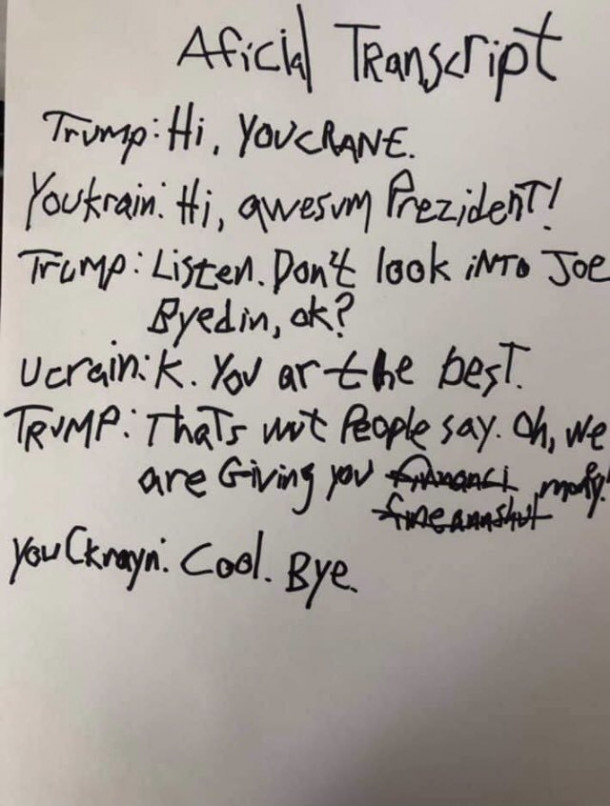 Aficial Transcript
Trump: Hi, YOUCRANE.
Youkrain: Hi, awesum Prezident!
Trump: Listen. Don't look iNTO Joe
Byedin, ok?
Ucrain: K. You ar the best.
TRUMP: Thats wut People say. Oh, we
are Giving you financi mony!
fineannshul
YouCkrayn: Cool. Bye.